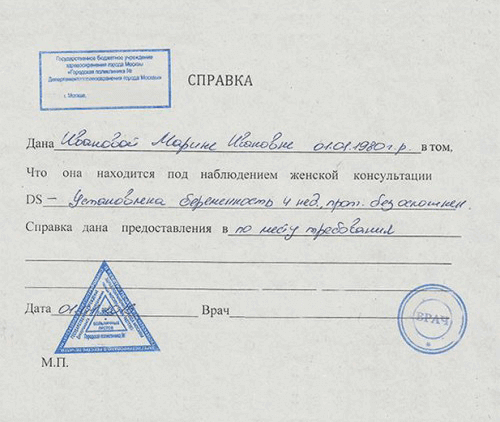 Государственное бюджетное учреждение
здравоохранения города Москвы
«Городская поликлиника №
Департамента здравоохранения города Москвы»
г. Москва,
СПРАВКА
Дана Ивановой Марине Ивановне 01.01.1980 г.р. в том,
Что она находится под наблюдением женской консультации
DS – Установлена беременность 4 нед., прот. без осложнен.
Справка дана предоставления в по месту требования
Дата Врач
БОЛЬНИЧНЫХ
ЛИСТОВ
Городская поликлиника №
ВРАЧ
М.П.